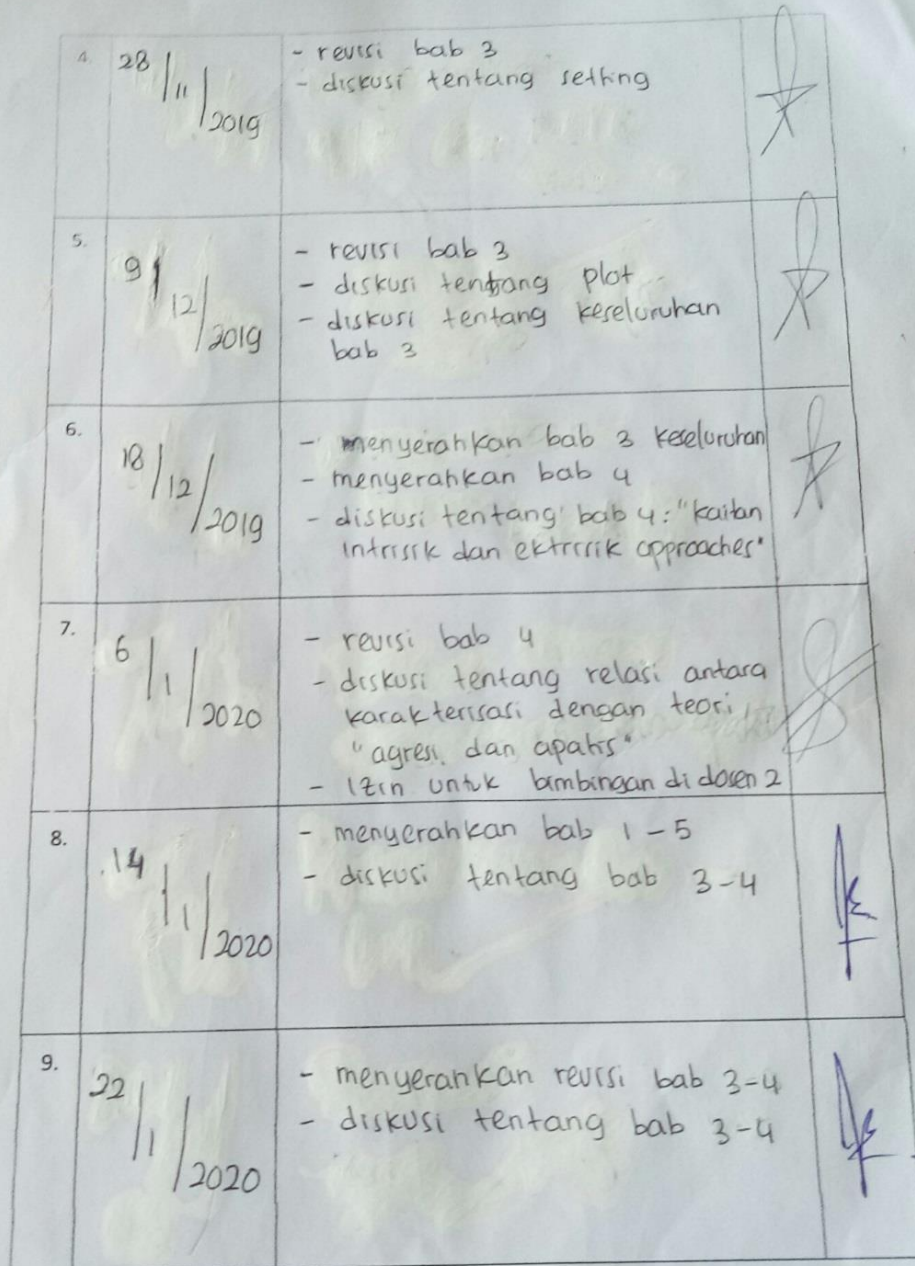 4. 28/11/2019
- revisi bab 3
- diskusi tentang setting
5. 9/12/2019
- revisi bab 3
- diskusi tentang plot
- diskusi tentang keseluruhan
bab 3
6. 18/12/2019
- menyerahkan bab 3 keseluruhan
- menyerahkan bab 4
- diskusi tentang bab 4: "kaitan
intrisik dan ektrisik approaches"
7. 6/1/2020
- revisi bab 4
- diskusi tentang relasi antara
karakterisasi dengan teori
"agresi dan apatis"
- izin untuk bimbingan di dosen 2
8. 14/1/2020
- menyerahkan bab 1-5
- diskusi tentang bab 3-4
9. 22/1/2020
- menyerahkan revisi bab 3-4
- diskusi tentang bab 3-4